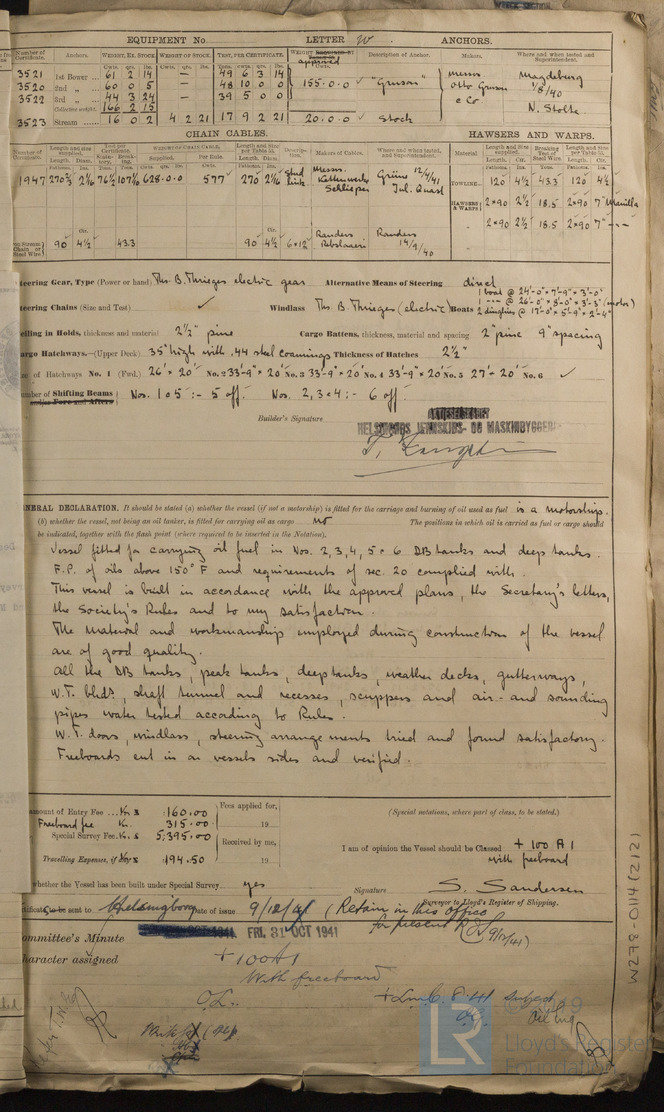 EQUIPMENT No. LETTER W ANCHORS.
Number of Certificate. Anchors. WEIGHT, EX. STOCK WEIGHT OF STOCK. TEST, PER CERTIFICATE. WEIGHT approved Description of Anchor. Makers. Where and when tested and Superintendent.
3521 1st Bower ... 61 2 14 — 49 6 3 14
3520 2nd „ ... 60 0 5 — 48 10 0 0 155.0.0 "Gruson" Messrs. Otto Gruson & Co Magdeburg 1/8/40 N. Stolte.
3522 3rd „ ... 44 3 24 — 39 5 0 0
Collective weight. 166 2 15
3523 Stream ... 16 0 2 4 2 21 17 9 2 21 20.0.0 Stock
CHAIN CABLES. HAWSERS AND WARPS.
1947 270 2 1/16 76 1/2 107 1/10 628.0.0 577 270 2 1/16 Stud link Messrs. Schlieper Grüne 12/4/41 Jul. Quast
TOWLINE 120 4½ 43.3 120 4½
HAWSERS & WARPS 2×90 2½ 18.5 2×90 7" Manilla
2×90 2½ 18.5 2×90 7" -"-
90 4½ 43.3 90 4½ 6×12 Randers Rebslaaeri Randers 14/9/40
teering Gear, Type (Power or hand) Ths. B. Thrige's electric gear Alternative Means of Steering direct
1 boat @ 24'-0" × 7'-9" × 3'-0"
1 -"- @ 26'-0" × 8'-0" × 3'-3" (motor)
teering Chains (Size and Test) ✓ Windlass Ths B. Thriges (electric) Boats 2 dinghies @ 17'-0" × 5'-9" × 2'-4"
eiling in Holds, thickness and material 2½" pine Cargo Battens, thickness, material and spacing 2" pine 9" spacing
argo Hatchways.—(Upper Deck) 35" high with .44 steel coamings Thickness of Hatches 2½"
e of Hatchways No. 1 (Fwd.) 26' × 20' No. 2 33'-9" × 20' No. 3 33'-9" × 20' No. 4 33'-9" × 20' No. 5 27' × 20' No. 6 ✓
umber of Shifting Beams and/or Fore and Afters Nos. 1 & 5 :- 5 off. Nos. 2, 3 & 4 :- 6 off.
AKTIESELSKABET
Builder's Signature HELSINGØRS JERNSKIBS- OG MASKINBYGGERI
ENERAL DECLARATION. It should be stated (a) whether the vessel (if not a motorship) is fitted for the carriage and burning of oil used as fuel is a motorship.
(b) whether the vessel, not being an oil tanker, is fitted for carrying oil as cargo no The positions in which oil is carried as fuel or cargo should
be indicated, together with the flash point (where required to be inserted in the Notation).
Vessel fitted for carrying oil fuel in Nos. 2, 3, 4, 5 & 6 DB tanks and deep tanks.
F.P. of oils above 150° F and requirements of sec. 20 complied with.
This vessel is built in accordance with the approved plans, the Secretary's letters,
the Society's Rules and to my satisfaction.
The material and workmanship employed during construction of the vessel
are of good quality.
All the DB tanks, peak tanks, deep tanks, weather decks, gutterways,
W.T. blhds, shaft tunnel and recesses, scuppers and air- and sounding
pipes water tested according to Rules.
W.T. doors, windlass, steering arrangements tried and found satisfactory.
Freeboards cut in on vessels sides and verified.
mount of Entry Fee ... Kr. 160.00 Fees applied for, (Special notations, where part of class, to be stated.)
Freeboard fee Kr. 315.00 19
Special Survey Fee Kr. 5,395.00 Received by me,
I am of opinion the Vessel should be Classed + 100 A1
Travelling Expenses, if any 194.50 19 with freeboard
whether the Vessel has been built under Special Survey yes Signature S. Sandersen
Surveyor to Lloyd's Register of Shipping.
rtificate to be sent to Helsingborg Date of issue 9/12/41 (Retain in this office
for present 9/12/41)
ommittee's Minute FRI. 31 OCT 1941
haracter assigned +100A1
With freeboard
+ LMC 8.41 subject
Oil Eng
W278-0114 (2/2)
LR
© 2019
Lloyd's Register
Foundation